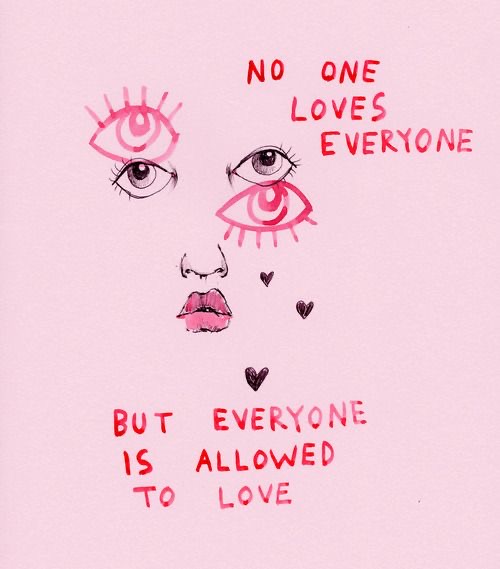 NO ONE
LOVES
EVERYONE
BUT EVERYONE
IS ALLOWED
TO LOVE